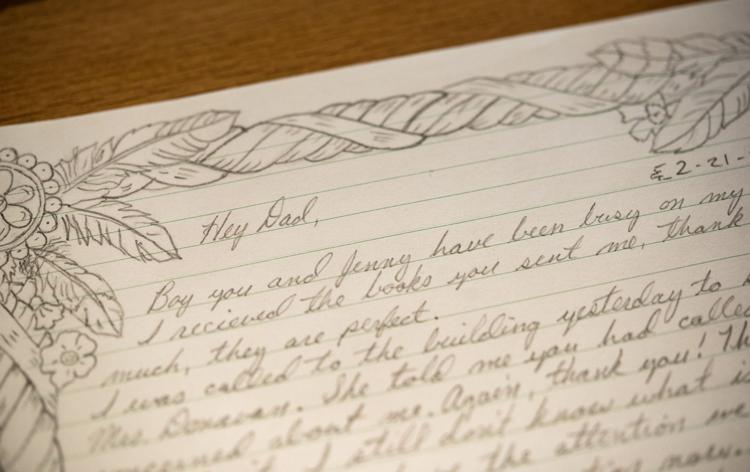 2-21-
Hey Dad,
Boy you and Jenny have been busy on my
I recieved the books you sent me, thank
much, they are perfect.
I was called to the building yesterday to
Mrs. Donavan. She told me you had called
concerned about me. Again, thank you! Th
it. I still don't know what i
the attention